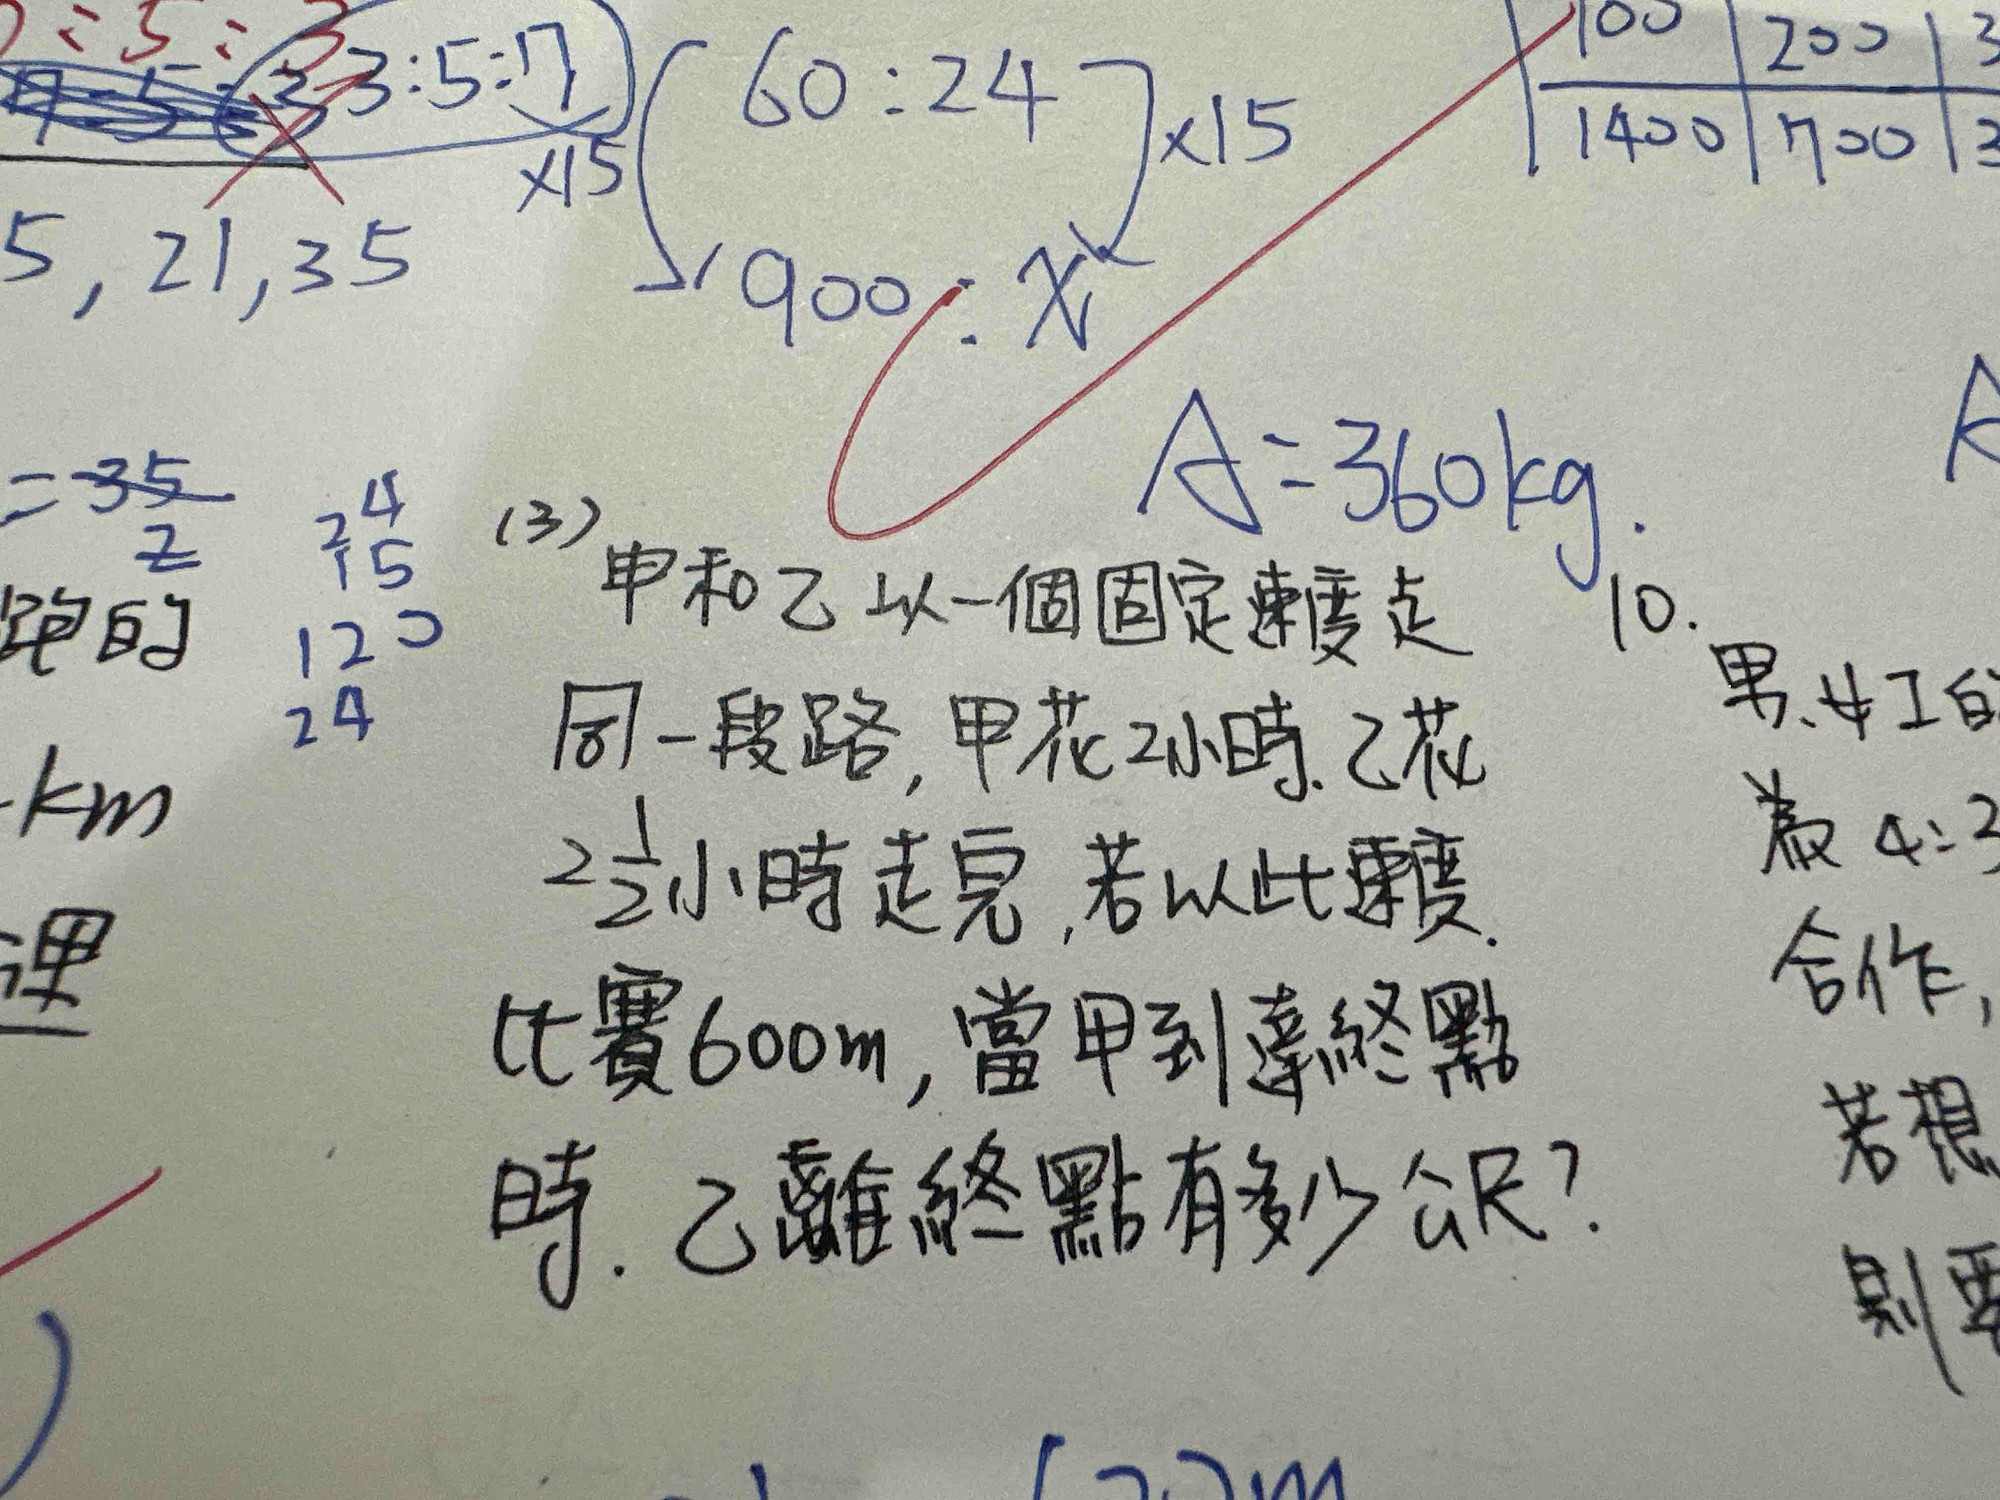 3:5:7
×15
5, 21, 35
60:24
×15
900:x
100 200 3
1400 700 3
A=360kg.
=35
2
24
15
120
24
跑的
km
理
(3)
甲和乙以一個固定速度走
同一段路,甲花2小時.乙花
2 1/2小時走完,若以此速度.
比賽600m,當甲到達終點
時.乙離終點有多少公尺?
10.
男、女工的
為4:3
合作,
若想
則要